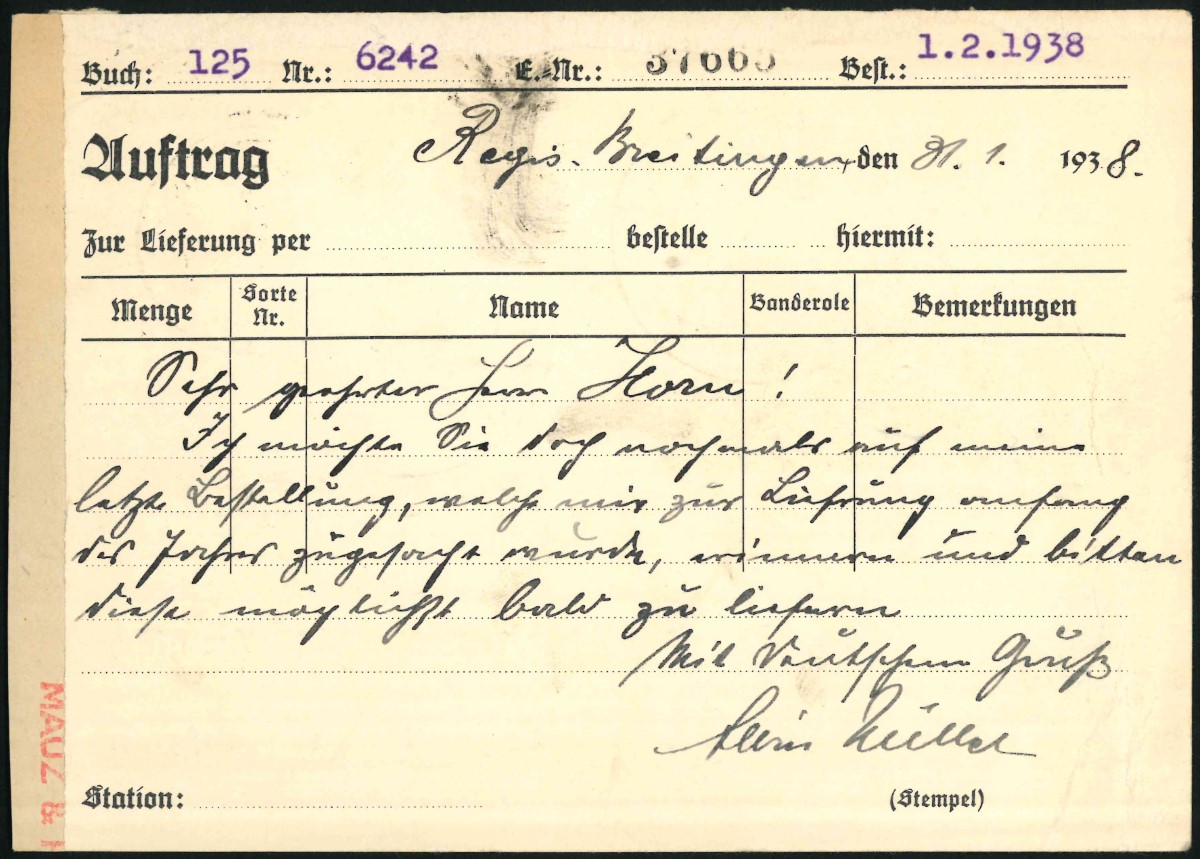 Buch: 125 Nr.: 6242 E.-Nr.: 37665 Best.: 1.2.1938
Auftrag Regis-Breitingen, den 31. 1. 1938.
Zur Lieferung per bestelle hiermit:
Menge Sorte Nr. Name Banderole Bemerkungen
Sehr geehrter Herr Horn!
Ich möchte Sie doch nochmals auf meine
letzte Bestellung, welche mir zur Lieferung anfang
des Jahres zugesacht wurde, erinnern und bitten
diese möglichst bald zu liefern
Mit Deutschem Gruß
Müller
Station: (Stempel)
MAUZ &